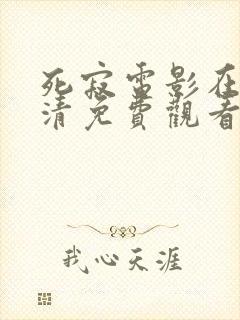 死寂电影在
清免費觀看
我心天涯